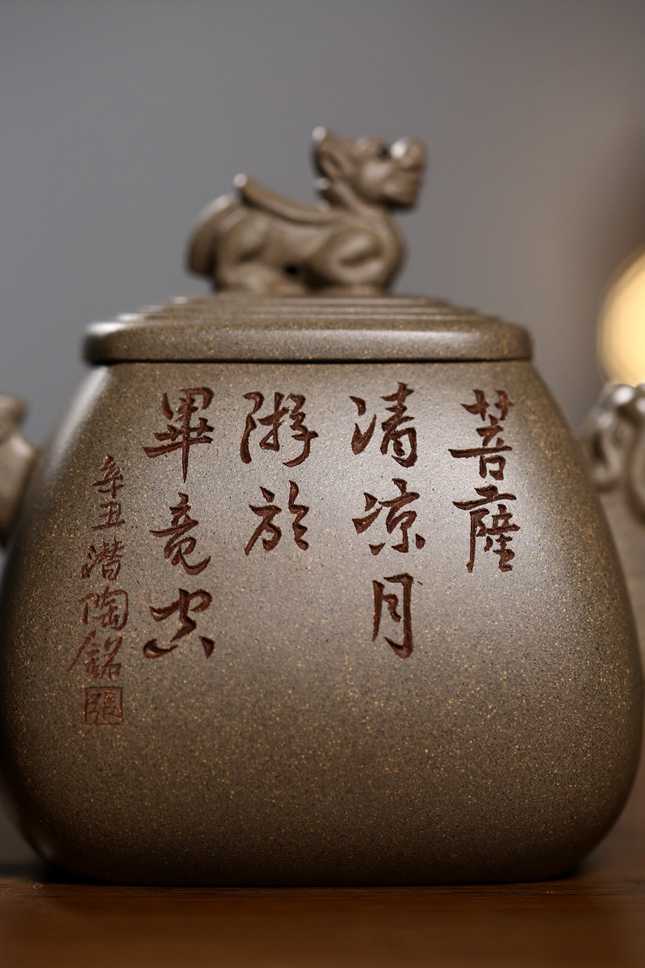 菩薩
清凉月
游於
畢竟空
辛丑潛陶銘
張